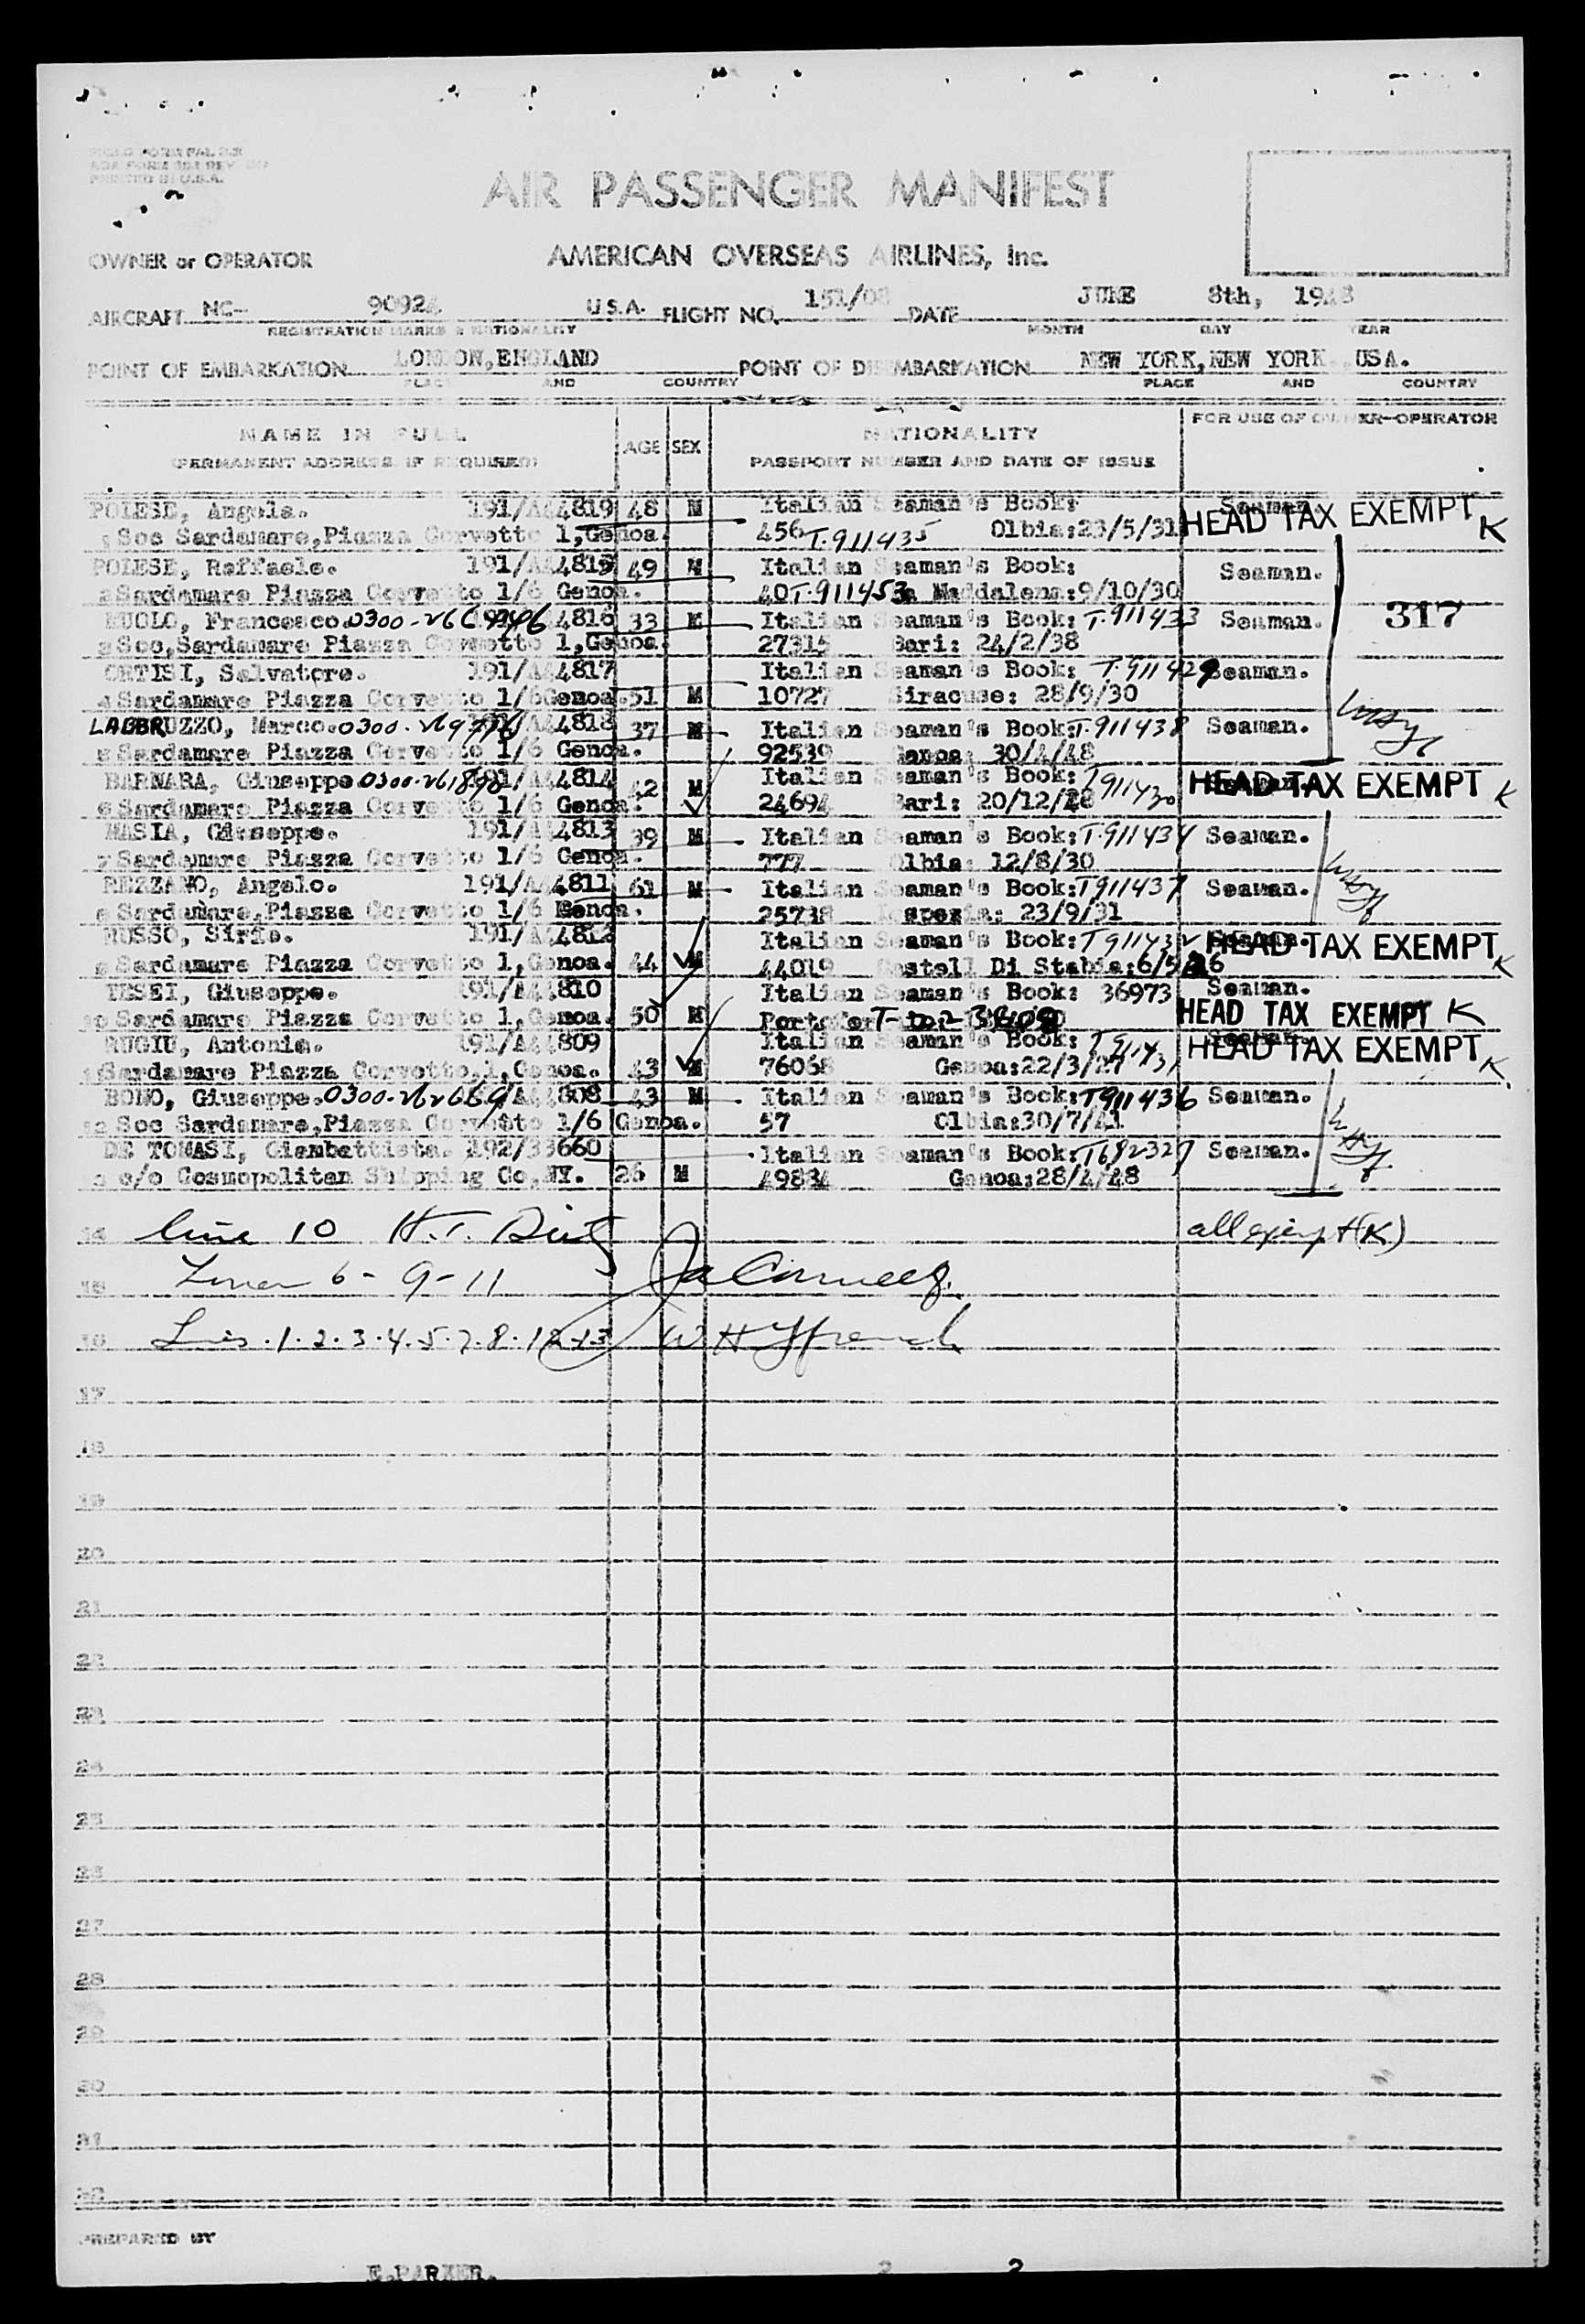 PRINTED IN U.S.A.
AIR PASSENGER MANIFEST
OWNER or OPERATOR AMERICAN OVERSEAS AIRLINES, Inc.
AIRCRAFT NC- 90924 U.S.A. FLIGHT NO. 151/08 DATE JUNE 8th, 1948
REGISTRATION MARKS & NATIONALITY MONTH DAY YEAR
POINT OF EMBARKATION LONDON,ENGLAND POINT OF DISEMBARKATION NEW YORK,NEW YORK.,USA.
PLACE AND COUNTRY PLACE AND COUNTRY
NAME IN FULL AGE SEX NATIONALITY FOR USE OF OWNER-OPERATOR
(PERMANENT ADDRESS IF REQUIRED) PASSPORT NUMBER AND DATE OF ISSUE
POLESE, Angelo. 191/A44819 48 M Italian Seaman's Book: Seaman.
1 Soc Sardamare,Piazza Corvetto 1,Genoa. 456 T.911435 Olbia:23/5/31 HEAD TAX EXEMPT K
POLESE, Raffaele. 191/A44815 49 M Italian Seaman's Book: Seaman.
2 Sardamare Piazza Corvetto 1/6 Genoa. 40 T.911453 Maddalena:9/10/30
RUOLO, Francesco. 4816 33 M Italian Seaman's Book: T.911433 Seaman. 317
3 Soc,Sardamare Piazza Corvetto 1,Genoa. 27315 Bari: 24/2/38
ORTISI, Salvatore. 191/A44817 Italian Seaman's Book: T.911429 Seaman.
4 Sardamare Piazza Corvetto 1/6Genoa. 51 M 10727 Siracuse: 28/9/30
LABBRUZZO, Marco. 4818 37 M Italian Seaman's Book: T.911438 Seaman.
5 Sardamare Piazza Corvetto 1/6 Genoa. 92539 Genoa: 30/4/48
BARNARA, Giuseppe 0300-261898 191/A44814 42 M Italian Seaman's Book: T911430 HEAD TAX EXEMPT K
6 Sardamare Piazza Corvetto 1/6 Genoa. 24694 Bari: 20/12/28
MASIA, Giuseppe. 191/A44813 39 M Italian Seaman's Book: T.911434 Seaman.
7 Sardamare Piazza Corvetto 1/6 Genoa. 777 Olbia: 12/8/30
REZZANO, Angelo. 191/A44811 61 M Italian Seaman's Book: T911437 Seaman.
8 Sardamare,Piazza Corvetto 1/6 Genoa. 25738 Laspezia: 23/9/31
RUSSO, Sirio. 191/A44812 Italian Seaman's Book: T911432 Seaman. HEAD TAX EXEMPT K
9 Sardamare Piazza Corvetto 1,Genoa. 44 M 44019 Castell Di Stabia:6/5/26
TESEI, Giuseppe. 191/A44810 Italian Seaman's Book: 36973 Seaman.
10 Sardamare Piazza Corvetto 1,Genoa. 50 M HEAD TAX EXEMPT K
RUGIU, Antonio. 191/A44809 Italian Seaman's Book: T911431 HEAD TAX EXEMPT K
11 Sardamare Piazza Corvetto,1,Genoa. 43 M 76068 Genoa:22/3/27
BONO, Giuseppe. 0300-262669 A44808 43 M Italian Seaman's Book: T911436 Seaman.
12 Soc Sardamare,Piazza Corvetto 1/6 Genoa. 57 Olbia:30/7/41
DE TOMASI, Giambattista. 192/33660 Italian Seaman's Book: T682327 Seaman.
13 c/o Cosmopolitan Shipping Co,NY. 26 M 49834 Genoa:28/4/48
14 Line 10 H.T. all exempt (K)
15 Lines 6-9-11
16 Lines .1.2.3.4.5.7.8.12-13 W H French
17
18
19
20
21
22
23
24
25
26
27
28
29
30
31
32
PREPARED BY
E.PARKER. 2 2